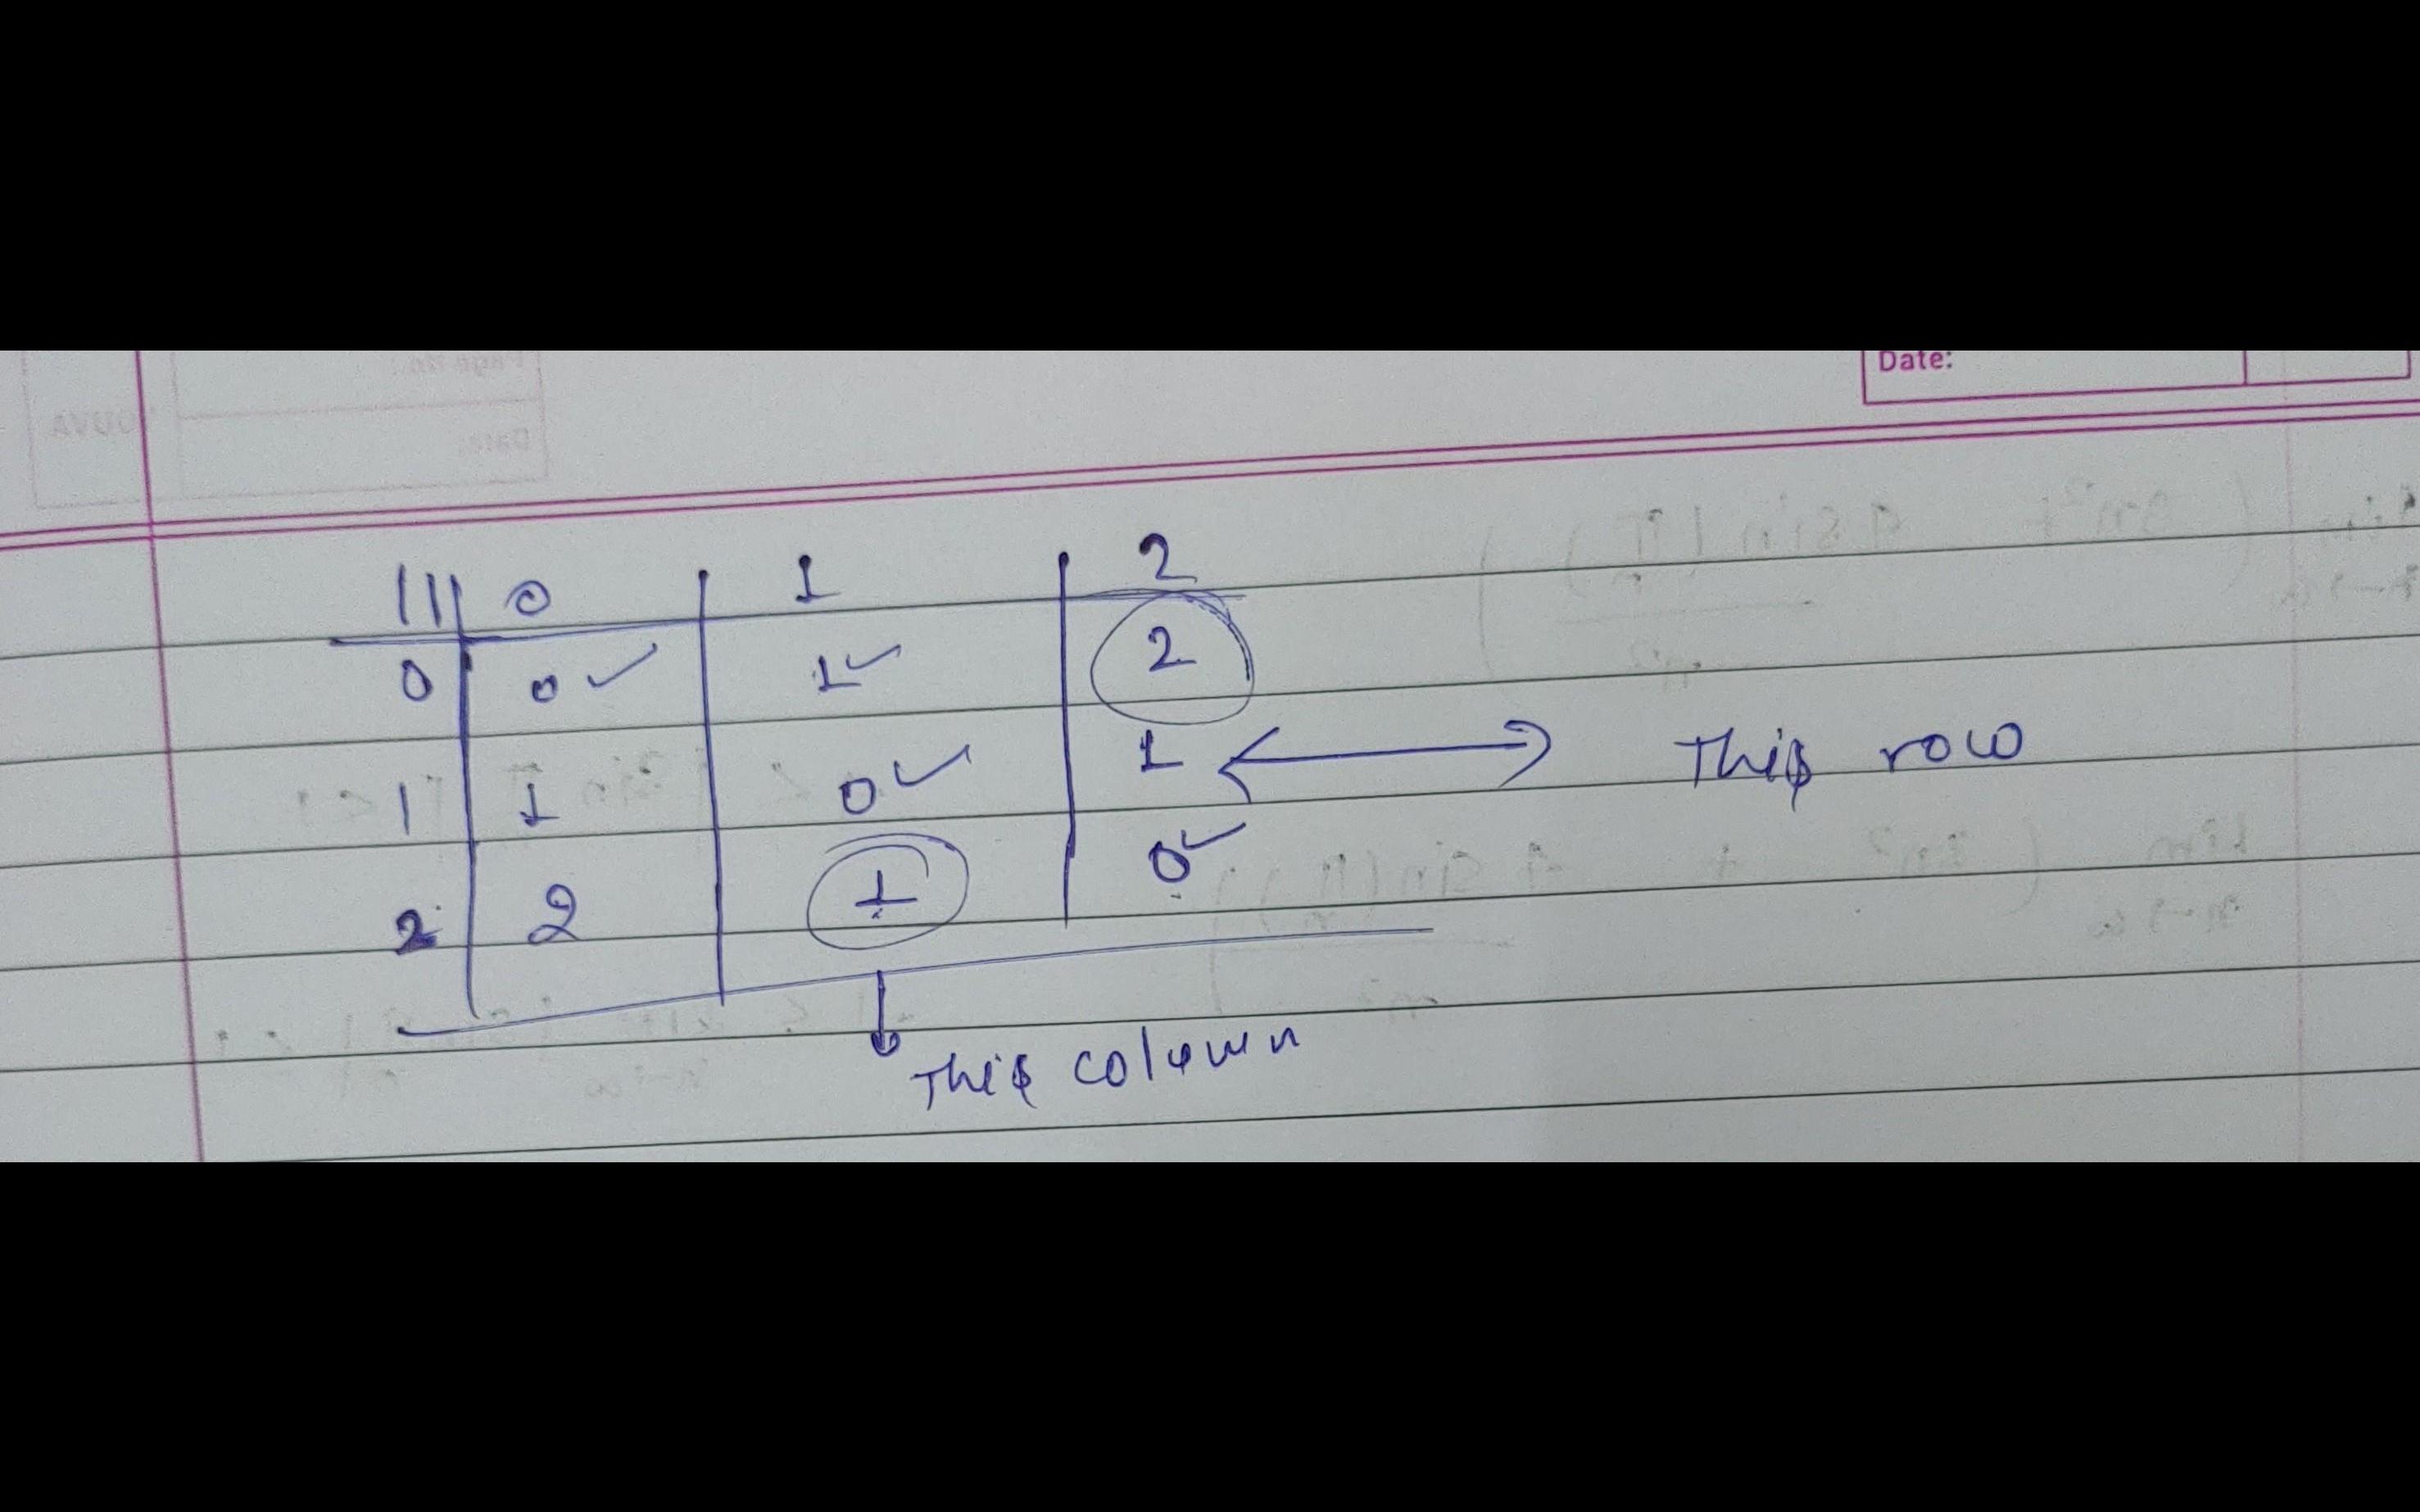 Date:
||| 0 1 2
0 0 ✓ 1 ✓ 2
1 1 0 ✓ 1 This row
2 2 1 0 ✓
This column